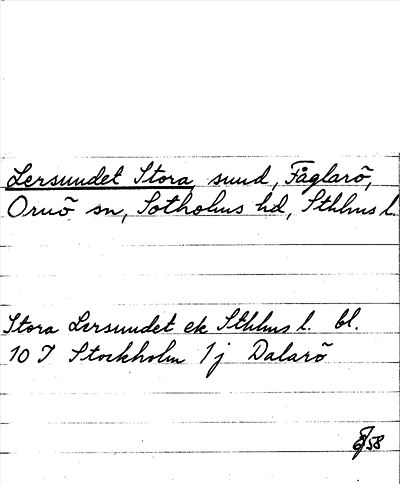 Lersundet Stora, sund, Fåglarö,
Ornö sn, Sotholms hd, Sthlms l.
Stora Lersundet ek Sthlms l. bl.
10 I Stockholm 1j Dalarö
58